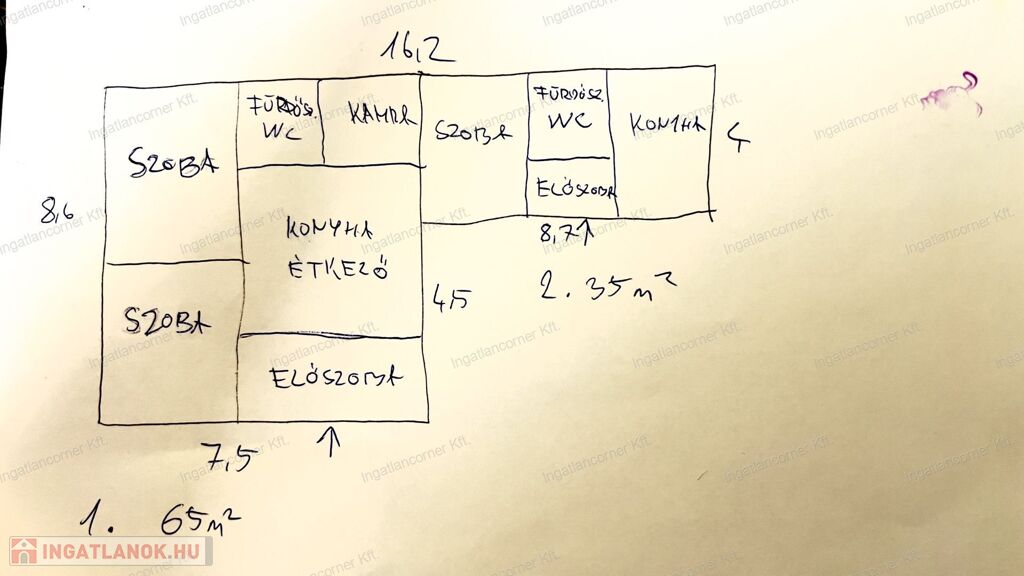 16,2
FÜRDŐSZ.
WC
KAMRA
SZOBA
FÜRDŐSZ.
WC
KONYHA
4
SZOBA
ELŐSZOBA
8,6
KONYHA
ÉTKEZŐ
8,7
2. 35m²
4,5
SZOBA
ELŐSZOBA
7,5
1. 65m²
INGATLANOK.HU
Ingatlancorner Kft.